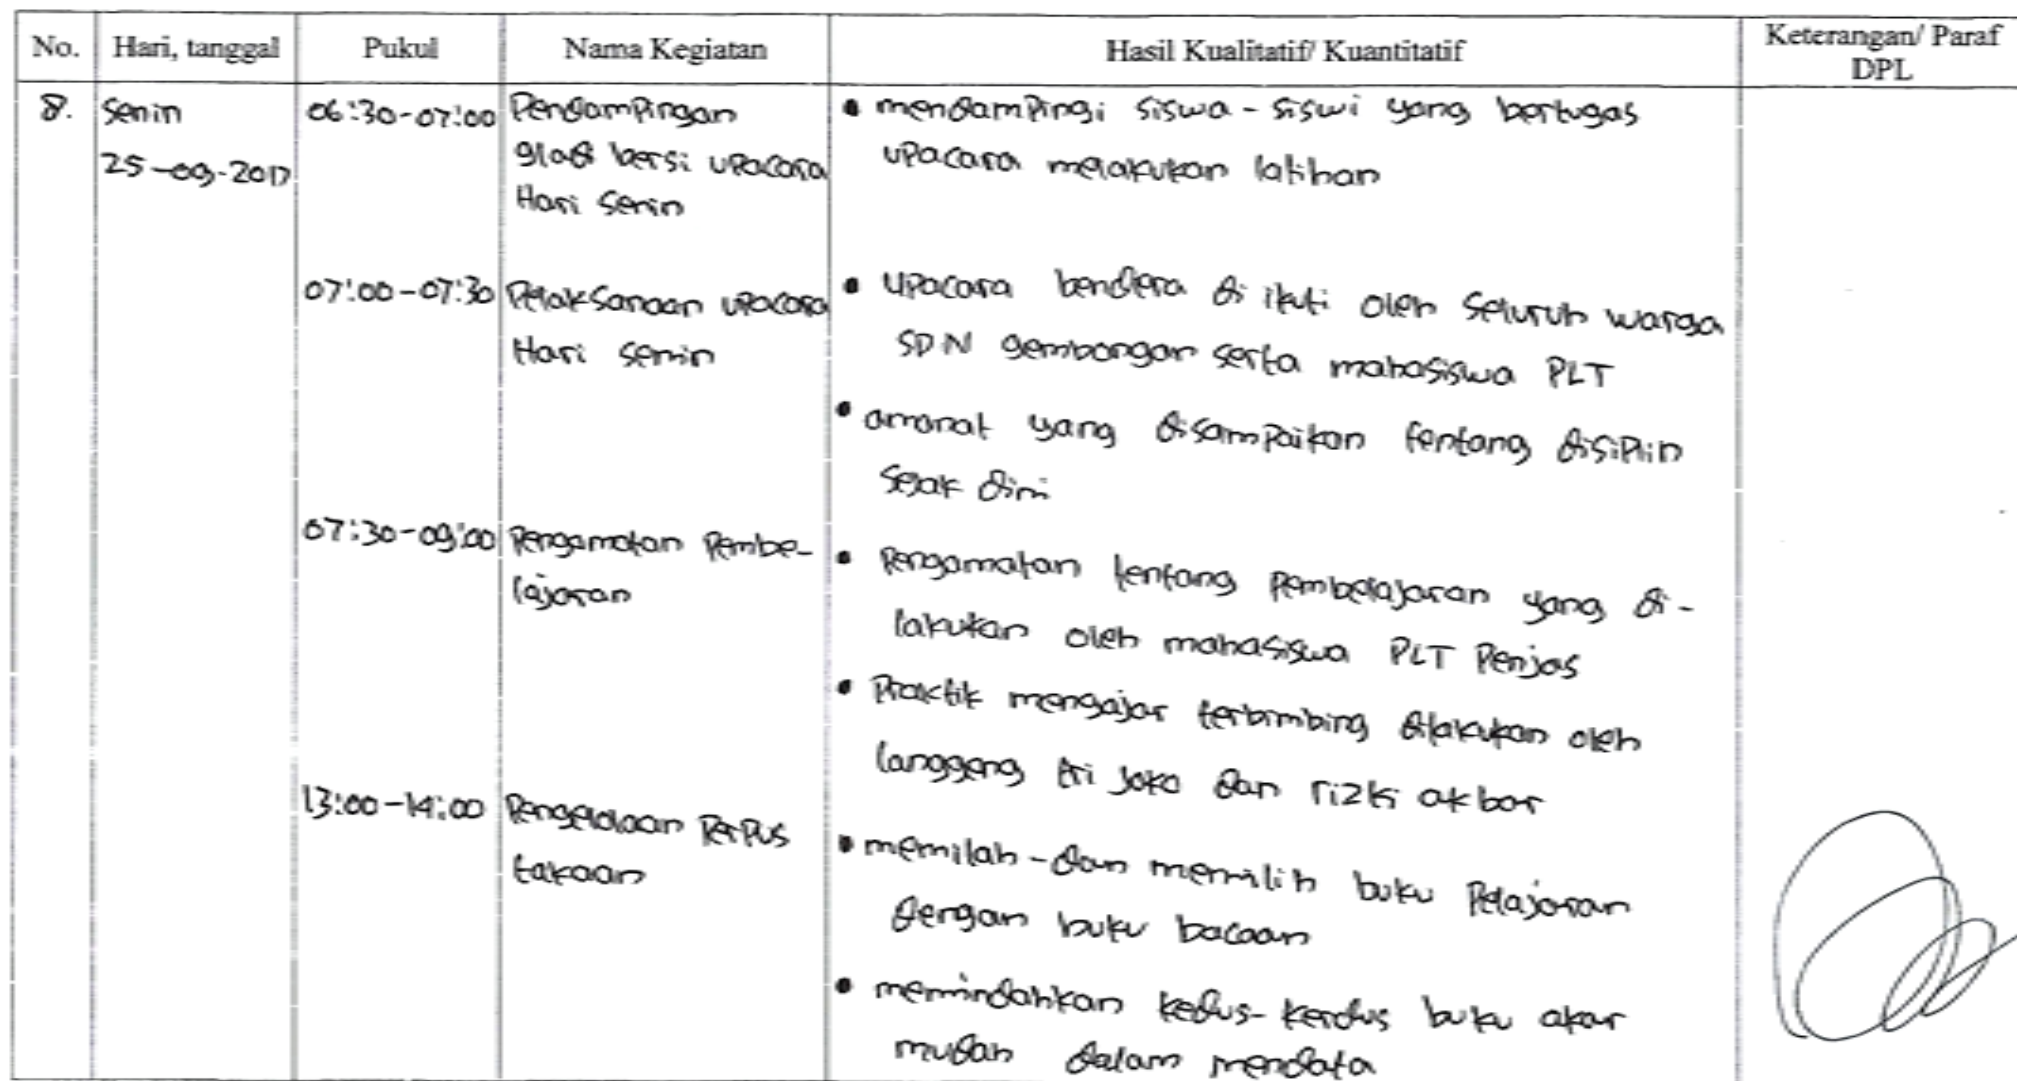 No. Hari, tanggal Pukul Nama Kegiatan Hasil Kualitatif/ Kuantitatif Keterangan/ Paraf DPL
8. Senin 25-09-2017
06:30-07:00 Pendampingan
gladi bersi upacara
Hari Senin
• mendampingi siswa-siswi yang bertugas
upacara melakukan latihan
07:00-07:30 Pelaksanaan upacara
Hari Senin
• Upacara bendera di ikuti oleh seluruh warga
SDN gembongan serta mahasiswa PLT
• amanat yang disampaikan tentang disiplin
sejak dini
07:30-09:00 Pengamatan Pembe-
lajaran
• Pengamatan tentang pembelajaran yang di-
lakukan oleh mahasiswa PLT Penjas
• Praktik mengajar terbimbing dilakukan oleh
langgeng tri joko dan rizki akbar
13:00-14:00 Pengelolaan Perpus
takaan
• memilah-dan memilih buku Pelajaran
dengan buku bacaan
• memindahkan kedus-kerdus buku akar
mudah dalam mendata